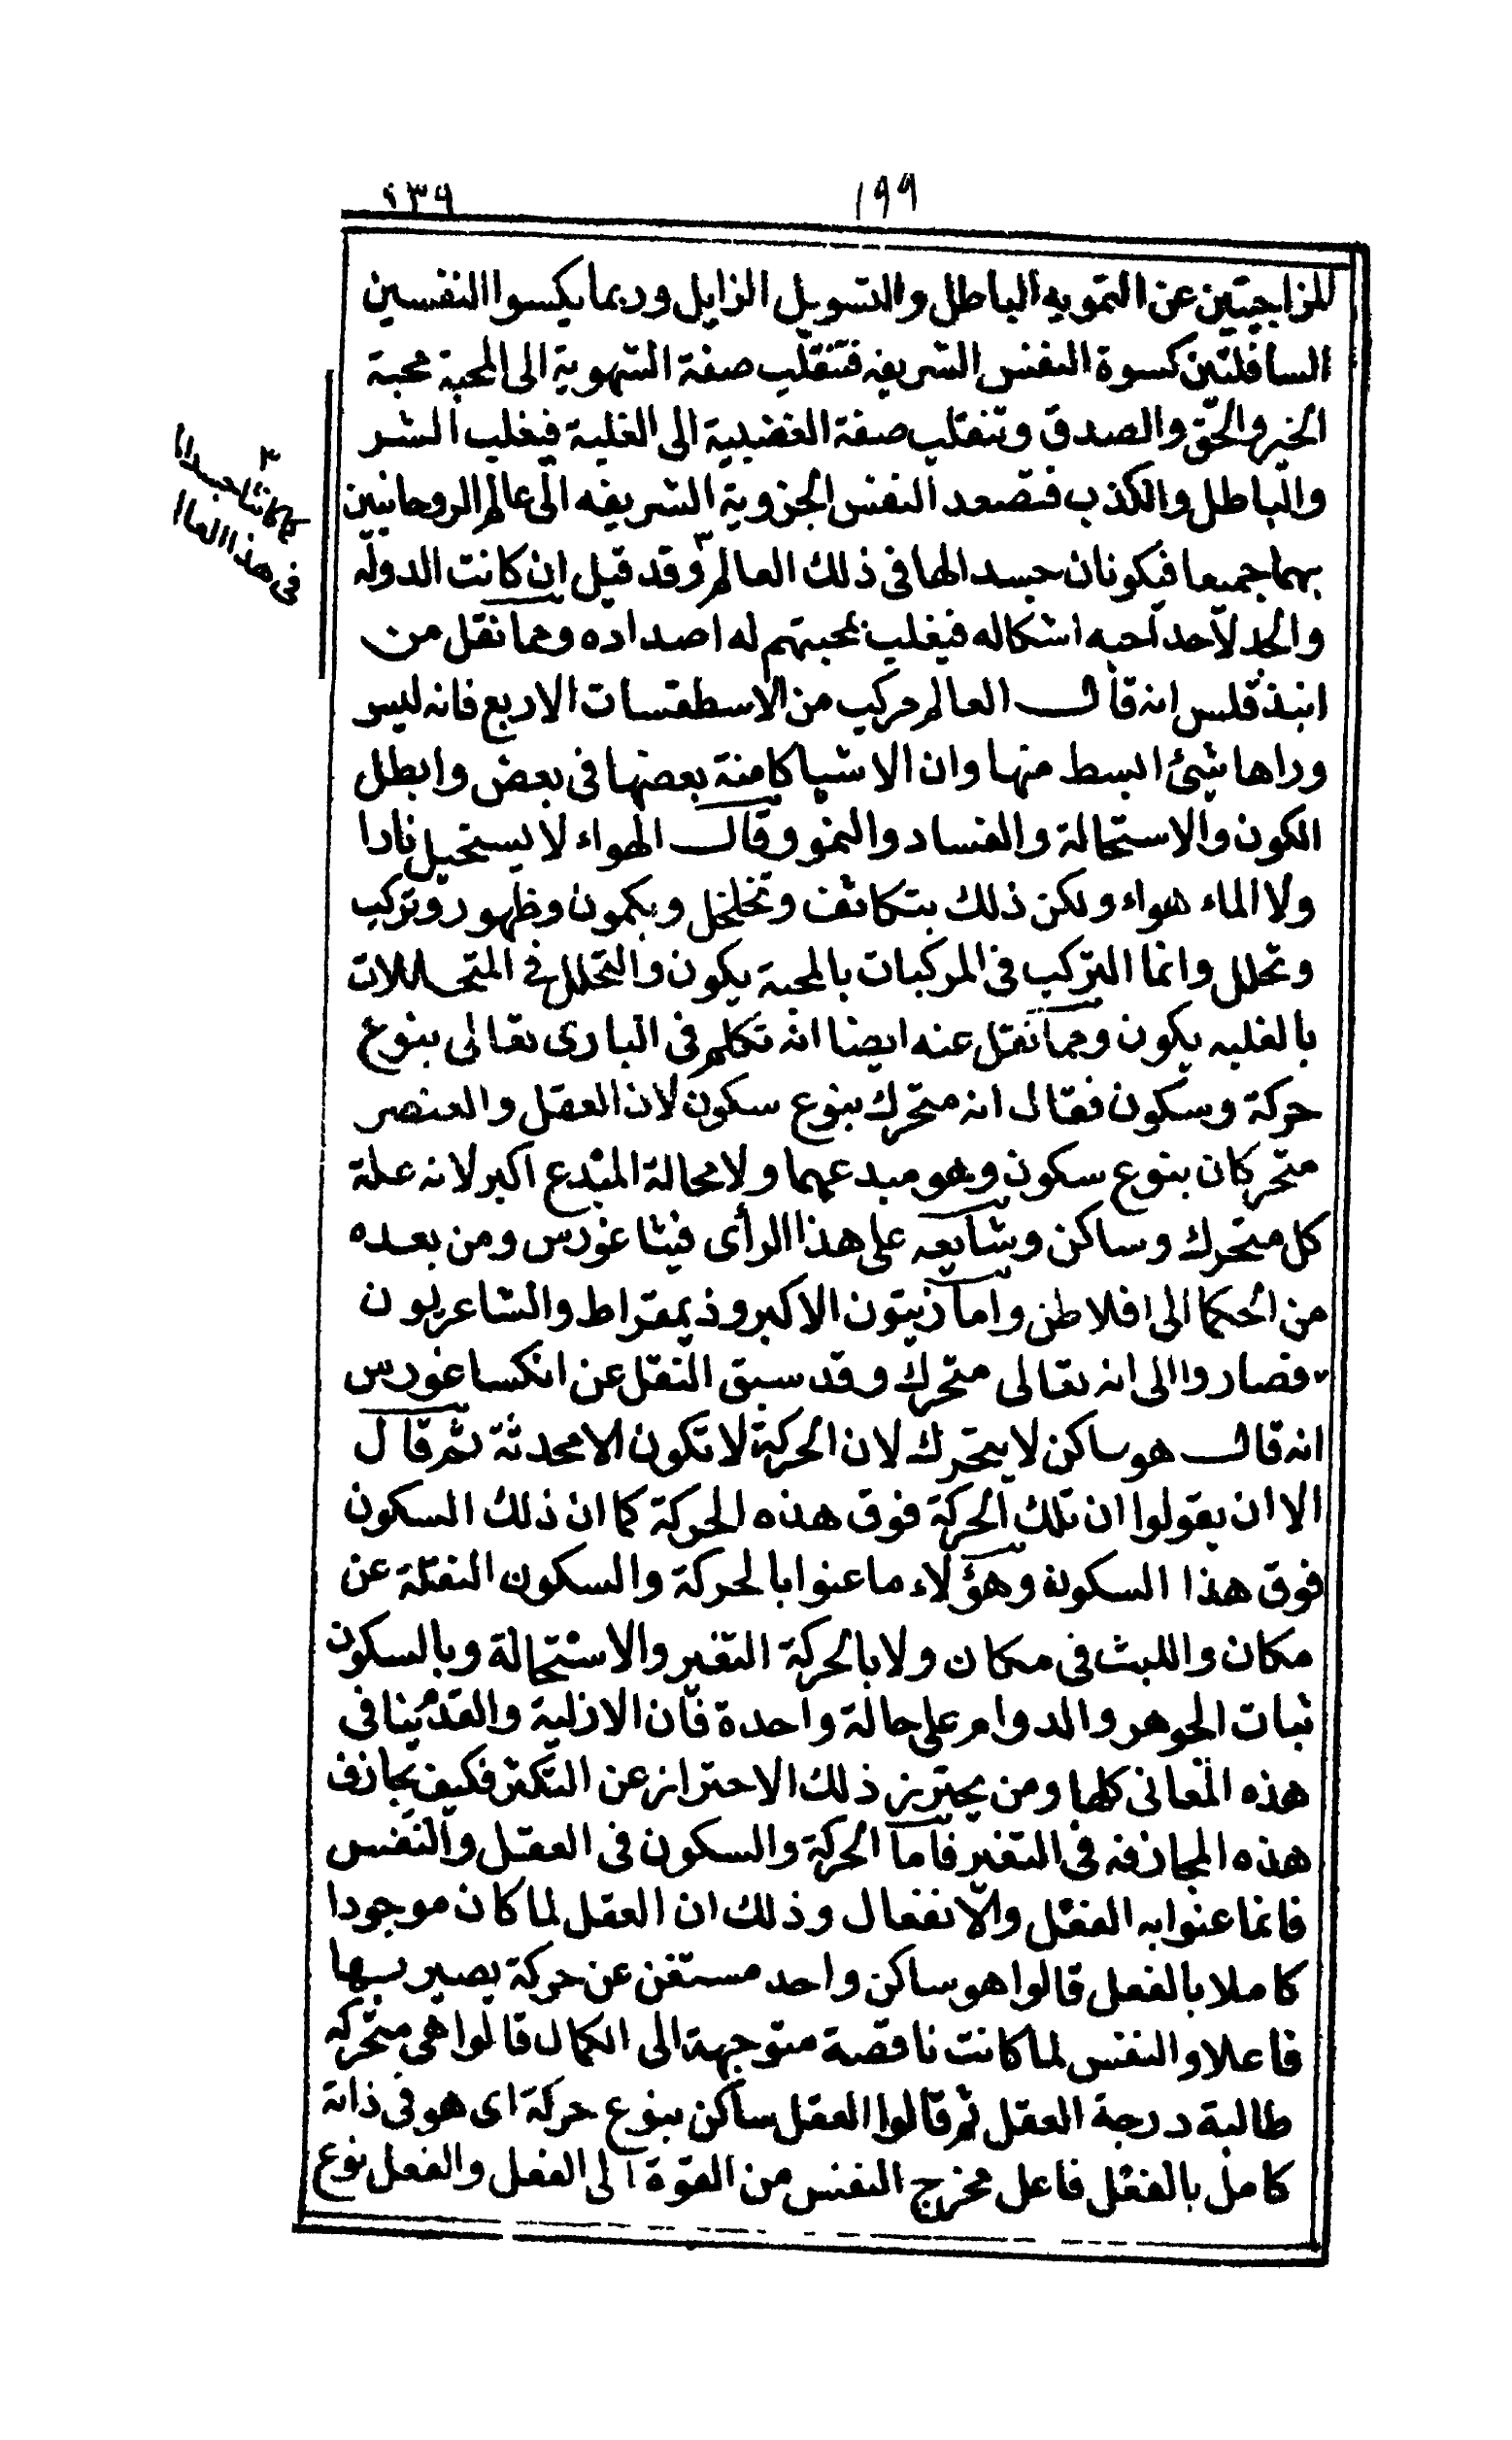 ١٩٩
١٣٩
للمزاجيتين عن التمويه الباطل والتسويل الزايل وربما يكسوا النفسين
السافلتين كسوة النفس الشريفه فتنقلب صفة الشهوية الى المحبة محبة
الخير والحق والصدق وتنقلب صفة الغضبية الى الغلبة فيغلب الشر
والباطل والكذب فتصعد النفس الجزوية الشريفه الى عالم الروحانيين
بهما جميعا فيكونان جسد الها فى ذلك العالم ٣ وقد قيل ان كانت الدوله
والجد لاحد احبه اشكاله فيغلب بمحبتهم له اضداده ومما نقل من
انبذقلس انه قال العالم مركب من الاسطقسات الاربع فانه ليس
وراها شئ ابسط منها وان الاشيا كامنة بعضها فى بعض وابطل
الكون والاستحالة والفساد والنمو وقال الهواء لا يستحيل نارا
ولا الماء هواء ولكن ذلك بتكاثف وتخلخل وبكمون وظهور وتركب
وتحلل وانما التركب فى المركبات بالمحبة يكون والتحلل فى المتحللات
بالغلبه يكون ومما نقل عنه ايضا انه تكلم فى البارى تعالى بنوع
حركة وسكون فقال انه متحرك بنوع سكون لان العقل والعنصر
متحركان بنوع سكون وهو مبدعهما ولا محالة المبدع اكبر لانه علة
كل متحرك وساكن وشايعه على هذا الرأى فيثاغورس ومن بعده
من الحكما الى افلاطن واما زيتون الاكبر وذيمقراط والشاعريون
فصاروا الى انه تعالى متحرك وقد سبق النقل عن انكساغورس
انه قال هو ساكن لا يتحرك لان الحركة لا تكون الا محدثة ثم قال
الا ان يقولوا ان تلك الحركة فوق هذه الحركة كما ان ذلك السكون
فوق هذا السكون وهؤلاء ما عنوا بالحركة والسكون النقلة عن
مكان واللبث فى مكان ولا بالحركة التغير والاستحالة وبالسكون
ثبات الجوهر والدوام على حالة واحدة فان الازلية والقدم ينافى
هذه المعانى كلها ومن يحترز ذلك الاحتراز عن التكثر فكيف يجازف
هذه المجازفه فى التغير فاما الحركة والسكون فى العقل والنفس
فانما عنوا به الفعل والانفعال وذلك ان العقل لما كان موجودا
كاملا بالفعل قالوا هو ساكن واحد مستغن عن حركة يصير بها
فاعلا والنفس لما كانت ناقصة متوجهة الى الكمال قالوا هى متحركه
طالبة درجة العقل ثم قالوا العقل ساكن بنوع حركة اى هو فى ذاته
كامل بالفعل فاعل مخرج النفس من القوة الى الفعل والفعل نوع
٣
كما كانتا جسدا
فى هذا العا